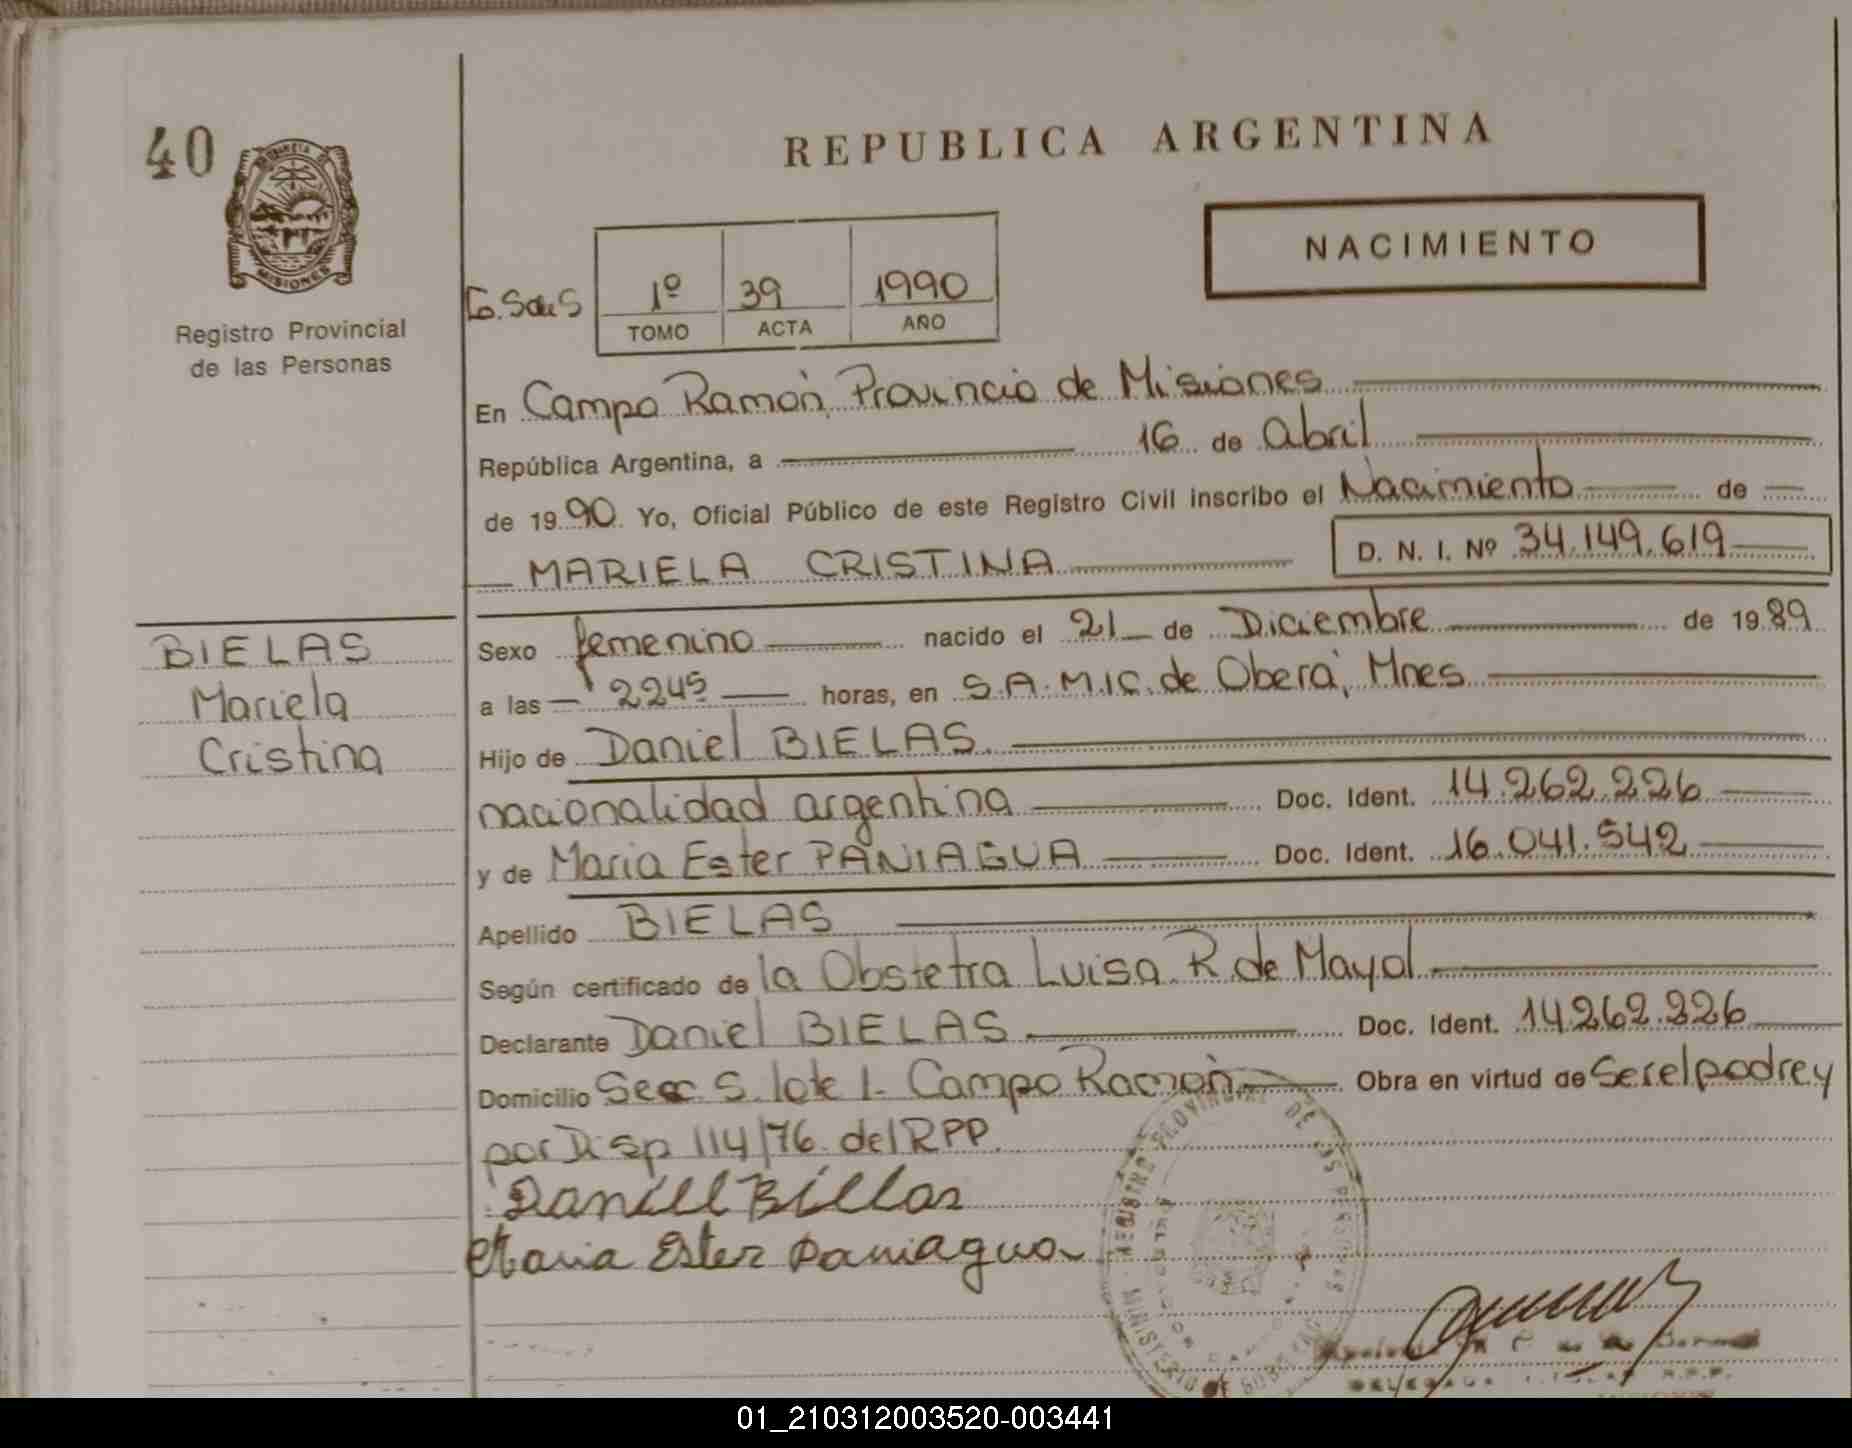 40
PROVINCIA DE
MISIONES
Registro Provincial
de las Personas
REPUBLICA ARGENTINA
NACIMIENTO
1º 39 1990
TOMO ACTA AÑO
En Campo Ramón, Provincia de Misiones
República Argentina, a 16 de Abril
de 1990 Yo, Oficial Público de este Registro Civil inscribo el Nacimiento de
MARIELA CRISTINA D. N. I. Nº 34.149.619
BIELAS
Mariela
Cristina
Sexo femenino nacido el 21 de Diciembre de 1989
a las 2245 horas, en S.A.M.I.C. de Oberá, Mnes
Hijo de Daniel BIELAS
nacionalidad argentina Doc. Ident. 14.262.226
y de Maria Ester PANIAGUA Doc. Ident. 16.041.542
Apellido BIELAS
Según certificado de la Obstetra Luisa R. de Mayol
Declarante Daniel BIELAS Doc. Ident. 14.262.226
Domicilio Secc. S. lote 1- Campo Ramón Obra en virtud de Ser el padre y
por Disp 114/76. del RPP.
Daniel Biellas
Maria Ester Paniagua
REGISTRO PROVINCIAL DE LAS PERSONAS
MINISTERIO DE GOBIERNO
01_210312003520-003441